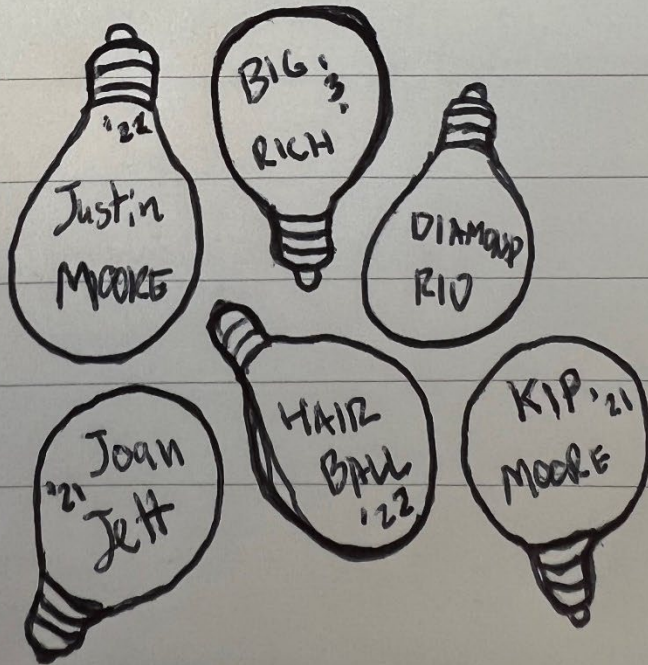 '22
Justin
MOORE
BIG &
RICH
DIAMOND
RIO
'21
Joan
Jett
HAIR
BALL
'22
KIP '21
MOORE